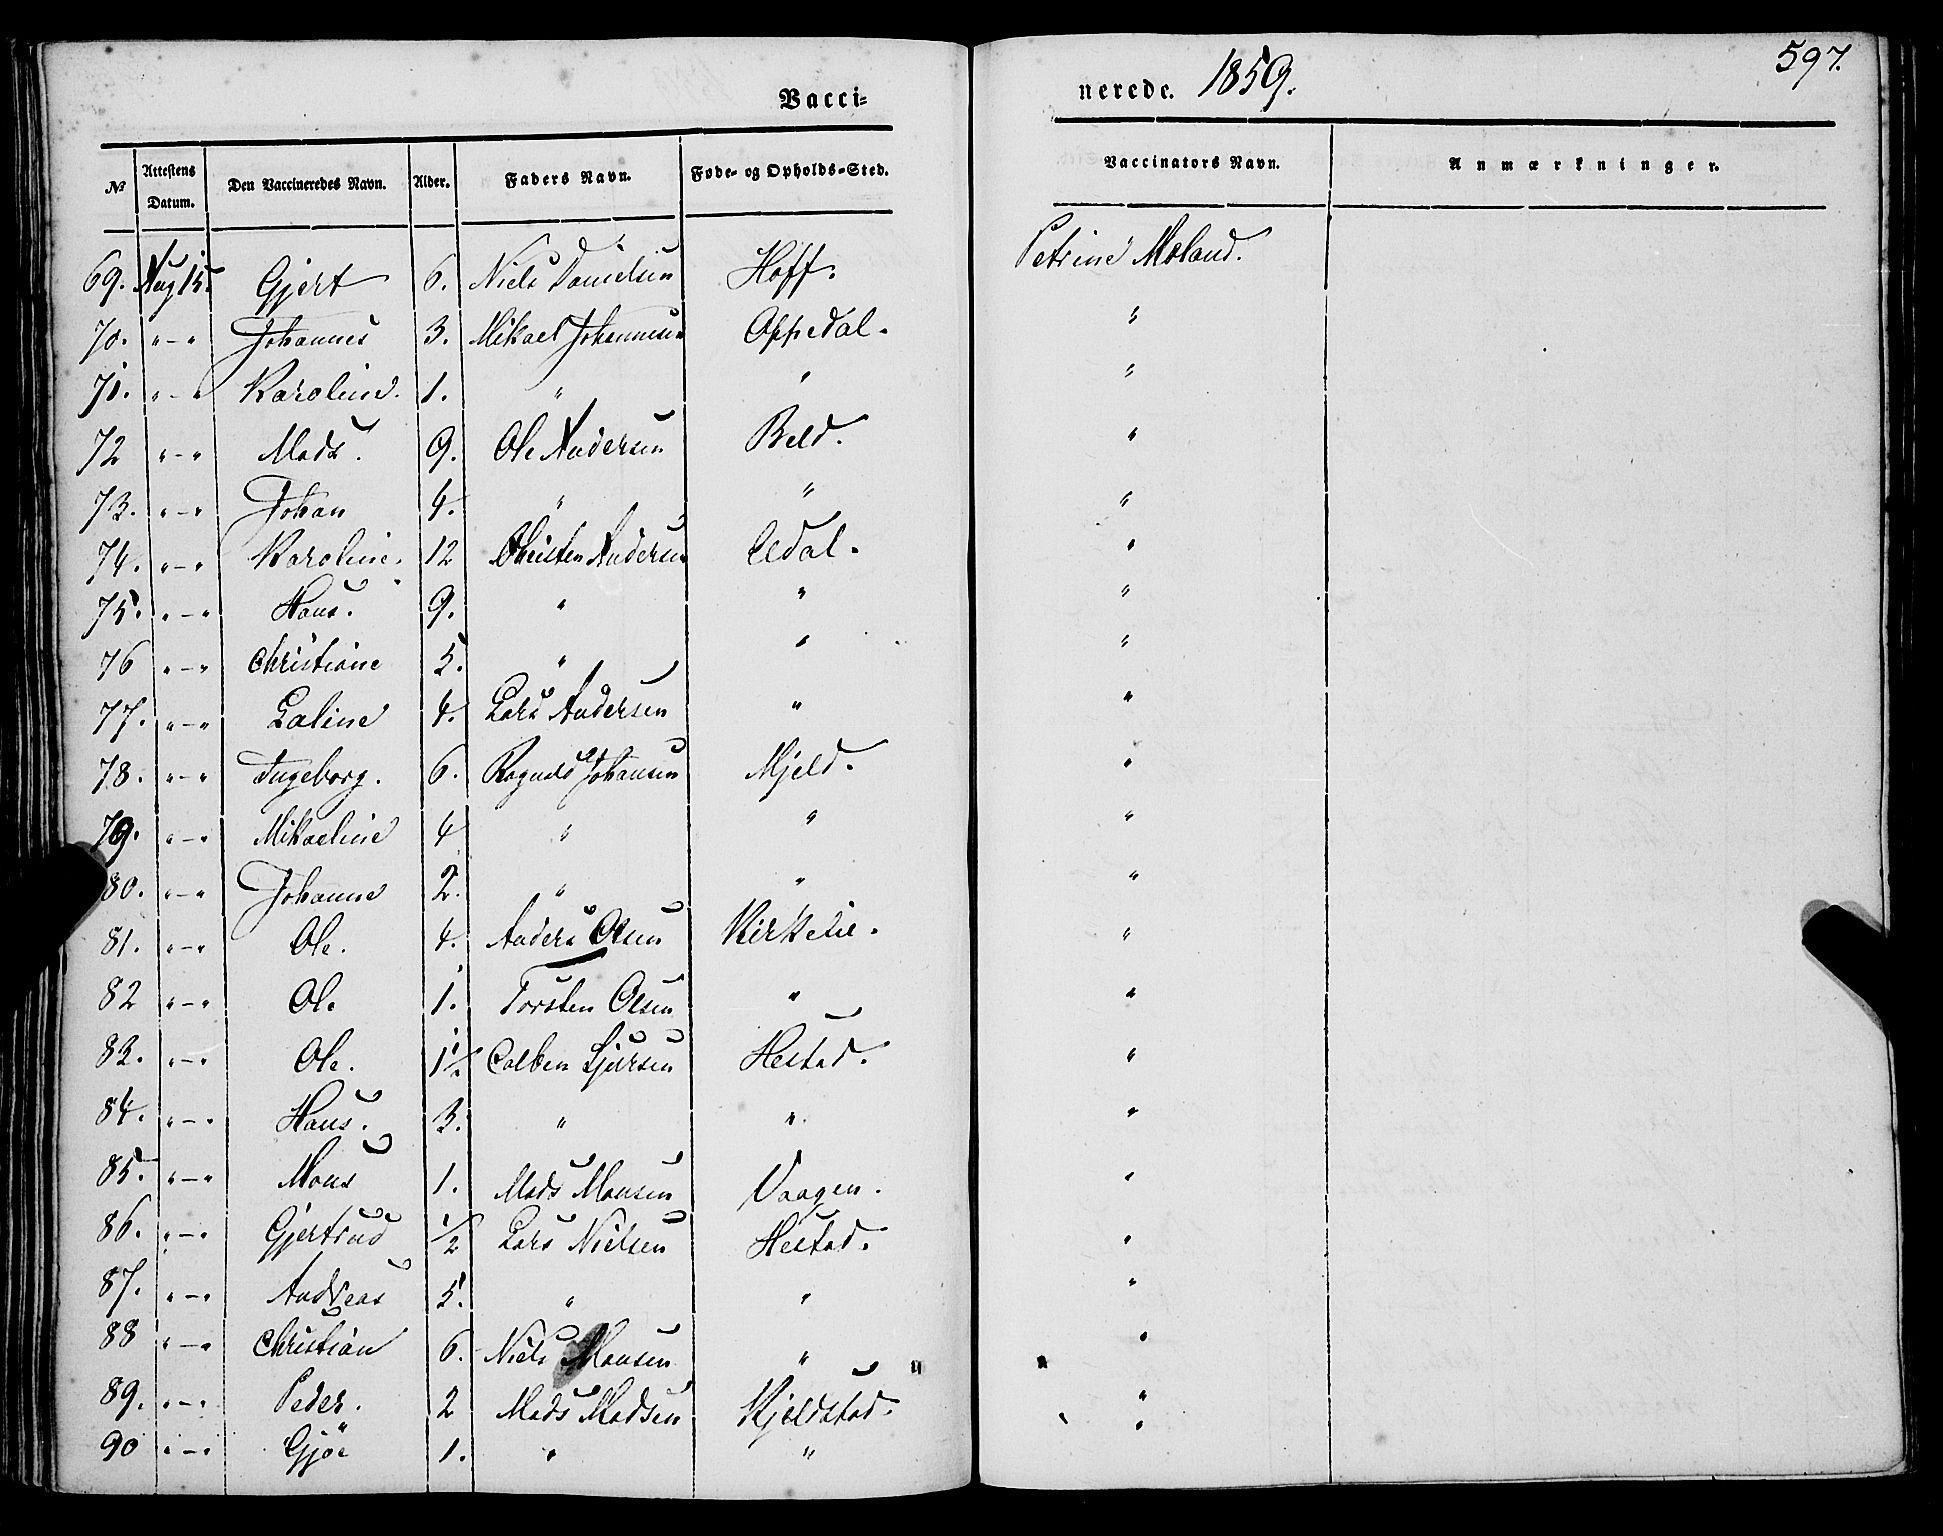 597.
Vacci=
nerede. 1859.
№ Attestens Datum. Den Vaccineredes Navn. Alder. Faders Navn. Føde- og Opholds-Sted. Vaccinators Navn. Anmærkninger.
69. Aug 15. Gjert 6. Niels Danielsen Hoff. Petrine Moland.
70. " - " Johannes 3. Mikael Johannesen Oppedal. "
71. " - " Karoline. 1. " " "
72 " - " Mads. 9. Ole Andersen Beld. "
73. " - " Johan 4. " " "
74. " - " Karoline. 12 Christen Andersen Aedal. "
75. " - " Hans. 9. " " "
76 " - " Christiane 5. " " "
77. " - " Laline 4. Lars Andersen " "
78. " - " Ingeborg. 6. Rognald Johansen Mjeld. "
79. " - " Mikaeline 4 " " "
80. " - " Johanne 2. " " "
81. " - " Ole. 4. Anders Olsen Kirkelie. "
82 " - " Ole 1. Torsten Olsen " "
83. " - " Ole. 1½ Colben Sjursen Hestad. "
84. " - " Hans. 3. " " "
85. " - " Mons 1. Mads Monsen Vaagen. "
86. " - " Gjertrud ½ Lars Nielsen Hestad. "
87. " - " Andreas 5. " " "
88 " - " Christian 6. Niels Monsen " "
89. " - " Peder. 2 Mads Madsen Kjeldstad. "
90 " - " Gjøe 1. " " "